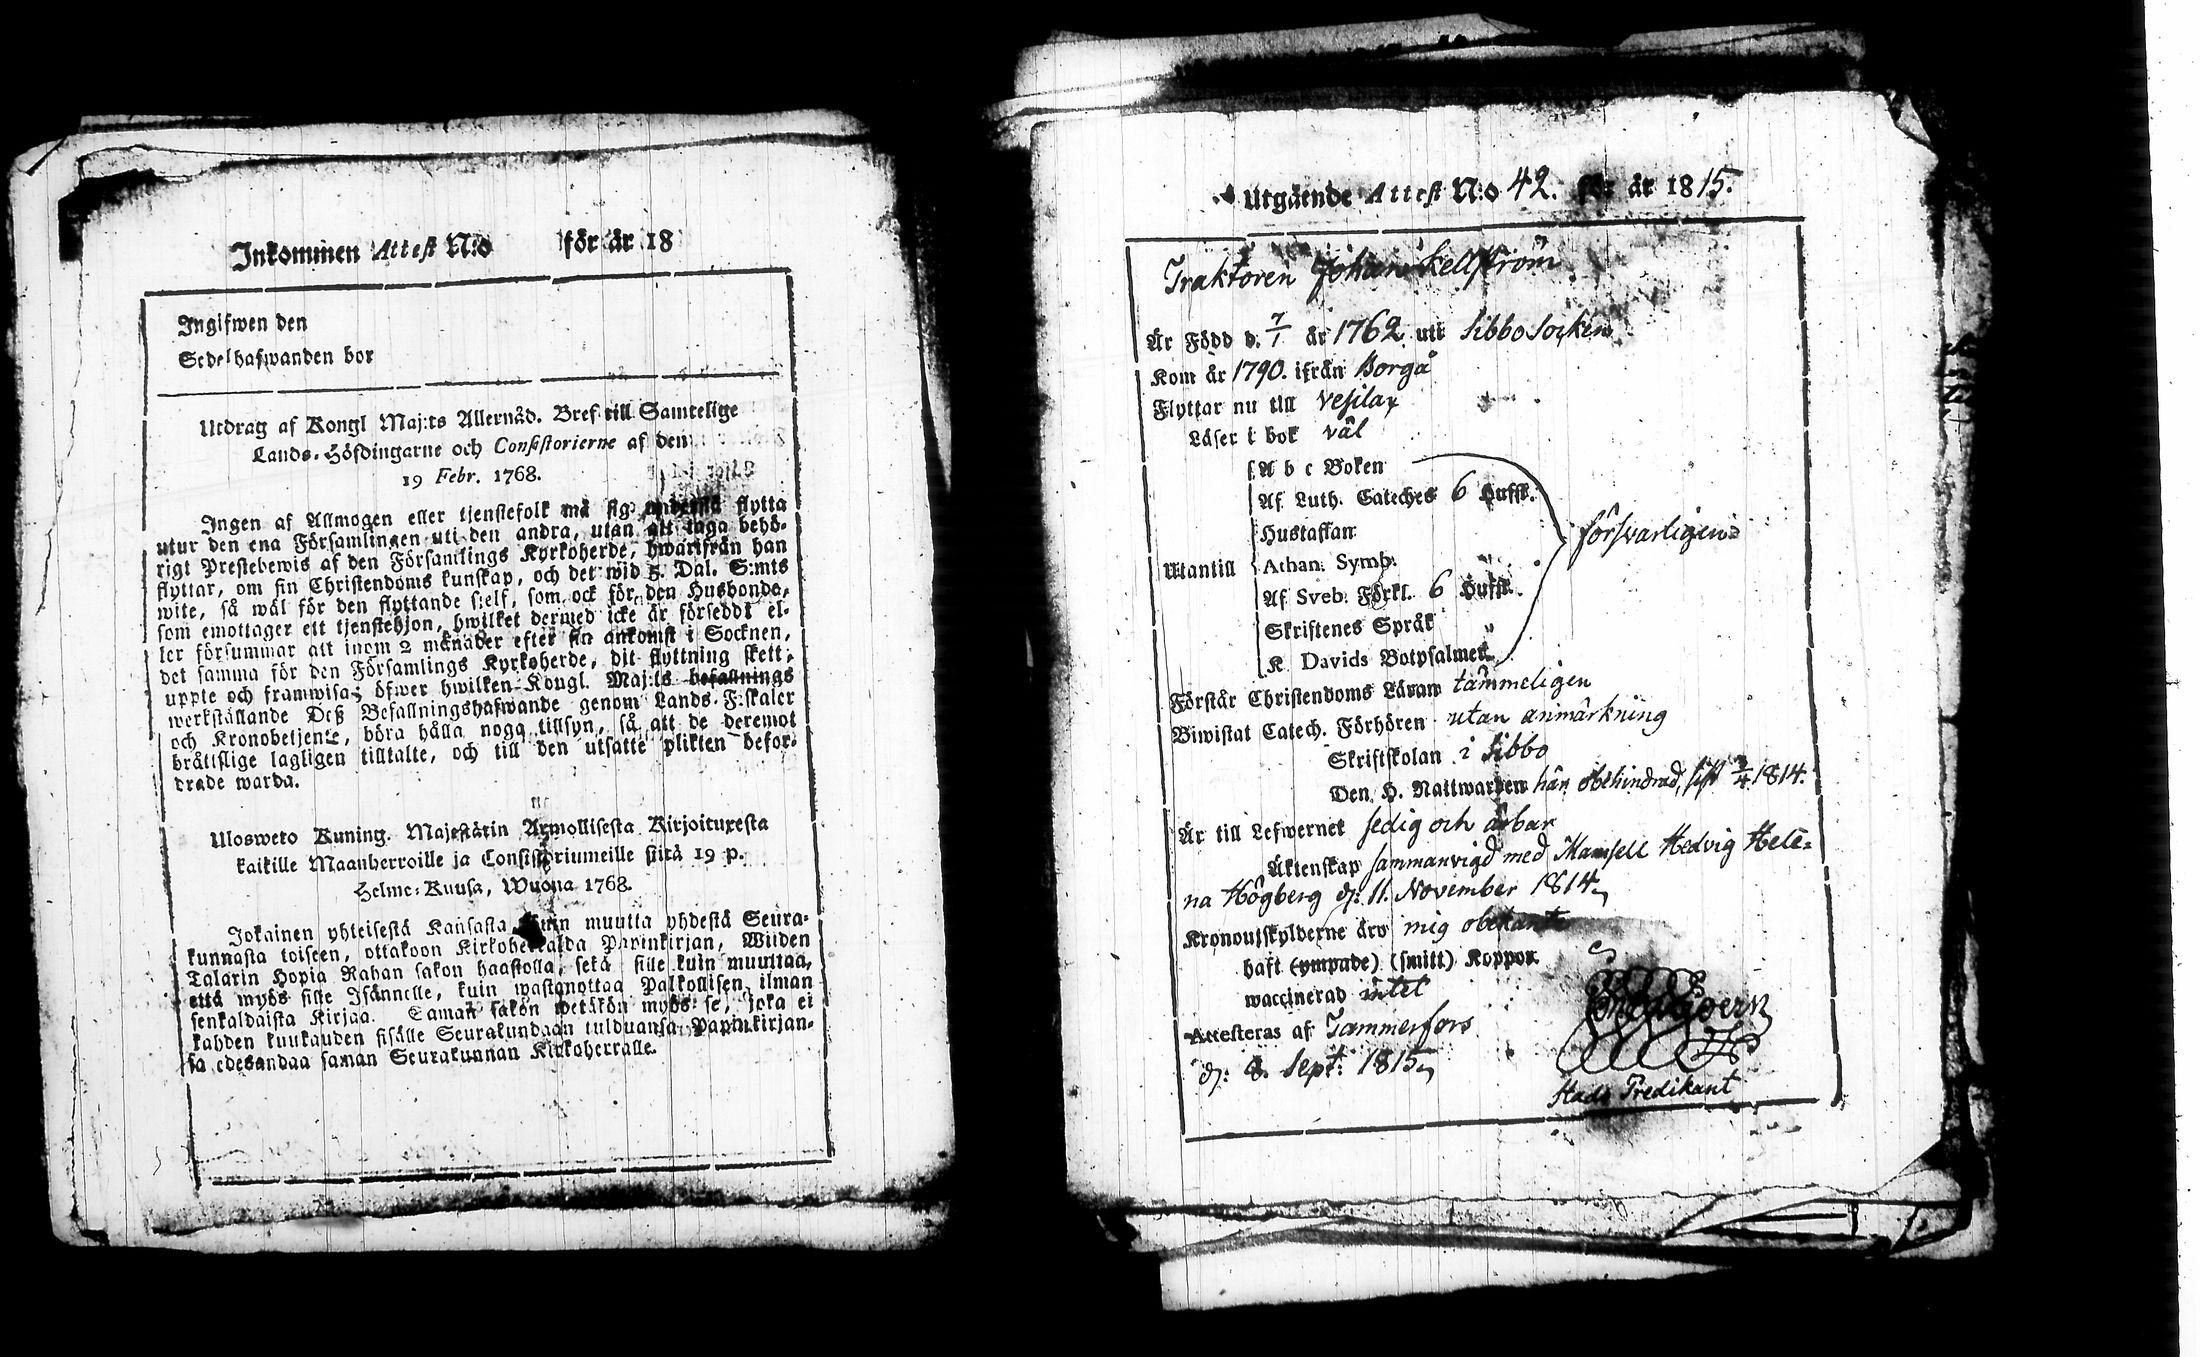 Inkommen Attest N:o för år 18
Ingifwen den
Sedelhafwanden bor
Utdrag af Kongl Maj:ts Allernåd. Bref till Samtelige
Lands-Höfdingarne och Consistorierne af den
19 Febr. 1768.
Ingen af Allmogen eller tjenstefolk må sig understå flytta
utur den ena Församlingen uti den andra, utan att taga behö-
rigt Prestebewis af den Församlings Kyrkoherde, hwarifrån han
flyttar, om sin Christendoms kunskap, och det wid 5. Dal. S:mts
wite, så wäl för den flyttande sjelf, som ock för den Husbonde,
som emottager ett tjenstehjon, hwilket dermed icke är förseddt el-
ler försummar att inom 2 månader efter sin ankomst i Socknen,
det samma för den Församlings Kyrkoherde, dit flyttning skett,
uppte och framwisa; öfwer hwilken Kongl. Maj:ts befallnings
werkställande Deß Befallningshafwande genom Lands-F:skaler
och Kronobetjente, böra hålla noga tillsyn, så att de deremot
bråttslige lagligen tilltalte, och till den utsatte plikten befor-
drade warda.
Ulosweto Kuning. Majestätin Armollisesta Kirjoituxesta
kaikille Maanherroille ja Consistoriumeille siitä 19 p.
Helme-Kuusa, Wuona 1768.
Jokainen yhteisestä Kansasta kuin muutta yhdestä Seura-
kunnasta toiseen, ottakoon Kirkoherralda Papinkirjan, Wiiden
Talarin Hopia Rahan sakon haastolla, sekä sille kuin muuttaa,
että myös sille Isännelle, kuin wastanottaa Palkollisen ilman
senkaldaista Kirjaa. Saman sakon wetäkön myös se, joka ei
kahden kuukauden sisälle Seurakundaan tulduansa Papinkirjan-
sa edesandaa saman Seurakunnan Kirkoherralle.
Utgående Attest N:o 42. för år 1815.
Traktören Johan Kellström
Är Född d. 7/1 år 1762 uti Sibbo Socken
Kom år 1790. ifrån Borgå
Flyttar nu till Vesilax
Läser i bok väl
Utantill
A b c Boken
Af Luth. Cateches 6 Hufst.
Hustaflan
Athan. Symb.
Af Sveb. Förkl. 6 Hufst.
Skriftenes Språk
K Davids Botpsalmer
försvarligen
Förstår Christendoms Läran tämmeligen
Biwistat Catech. Förhören utan anmärkning
Skriftskolan i Sibbo
Den H. Nattwarden här obehindrad, sist 3/4 1814.
Är till Lefwernet sedig och ärbar
Äktenskap sammanvigd med Mamsell Hedvig Hele=
na Högberg d: 11. November 1814
Kronoutskylderne äro mig obekante
haft (ympade) (smitt) Koppor
waccinerad intet
Attesteras af Tammerfors
d: 8. Sept: 1815
Stads Predikant